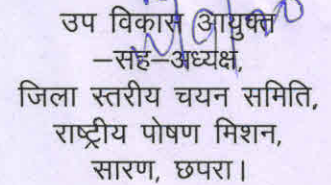 उप विकास आयुक्त
–सह–अध्यक्ष,
जिला स्तरीय चयन समिति,
राष्ट्रीय पोषण मिशन,
सारण, छपरा।